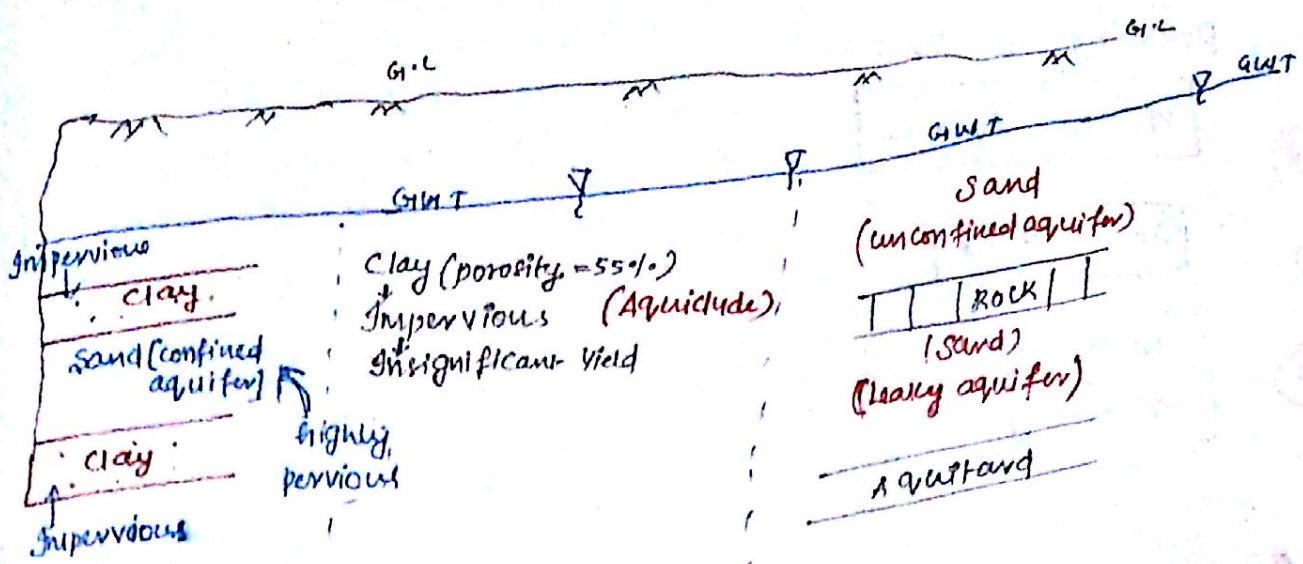 G.L
G.L
GWT
GWT
GWT
Impervious
Clay.
Sand (confined
aquifer)
highly
pervious
Clay
Impervious
Clay (porosity = 55%)
Impervious (Aquiclude)
Insignificant Yield
Sand
(unconfined aquifer)
ROCK
(Sand)
(Leaky aquifer)
Aquitard